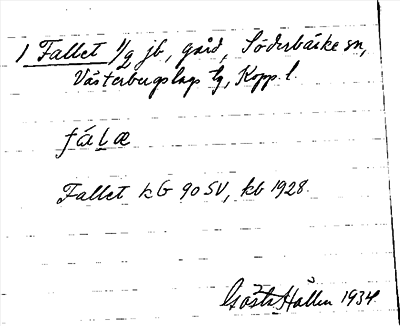 1 Fallet 1/9 jb, gård, Söderbärke sn,
Västerbergslags tg, Kopp. l.
fálæ
Fallet kG 90 SV, kb 1928.
Gösta Hallen 1934.